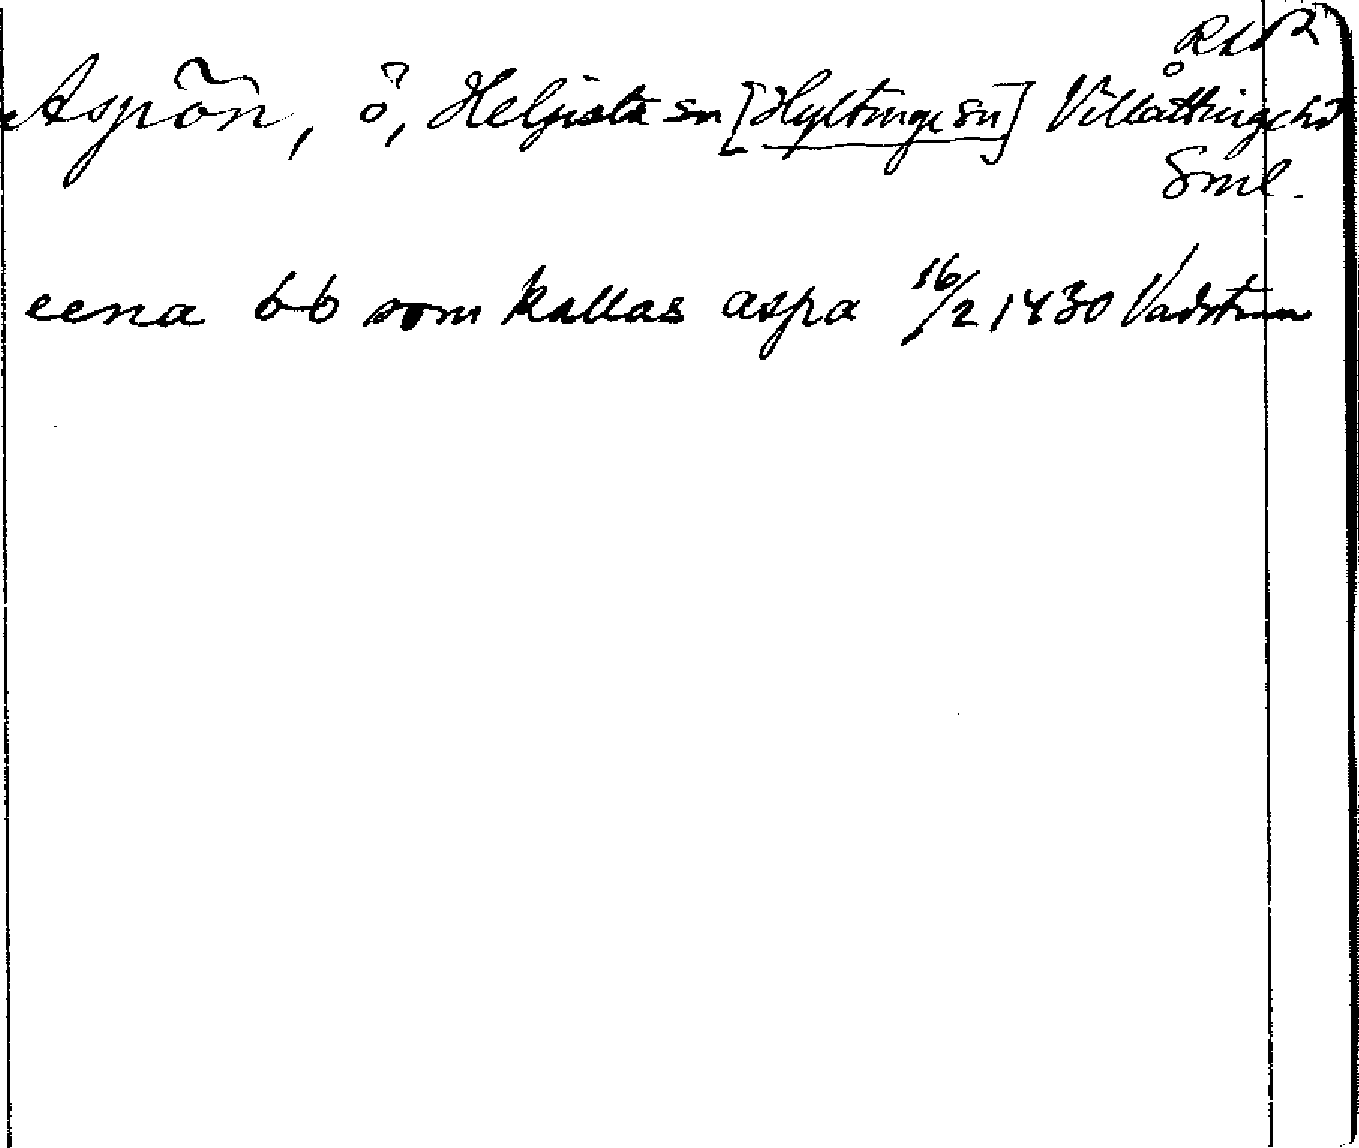 Aspön, ö, Helgesta sn [Hyltinge sn] Villåttinge hd
Sml.
eena öö som kallas aspa 16/2 1430 Vadstena